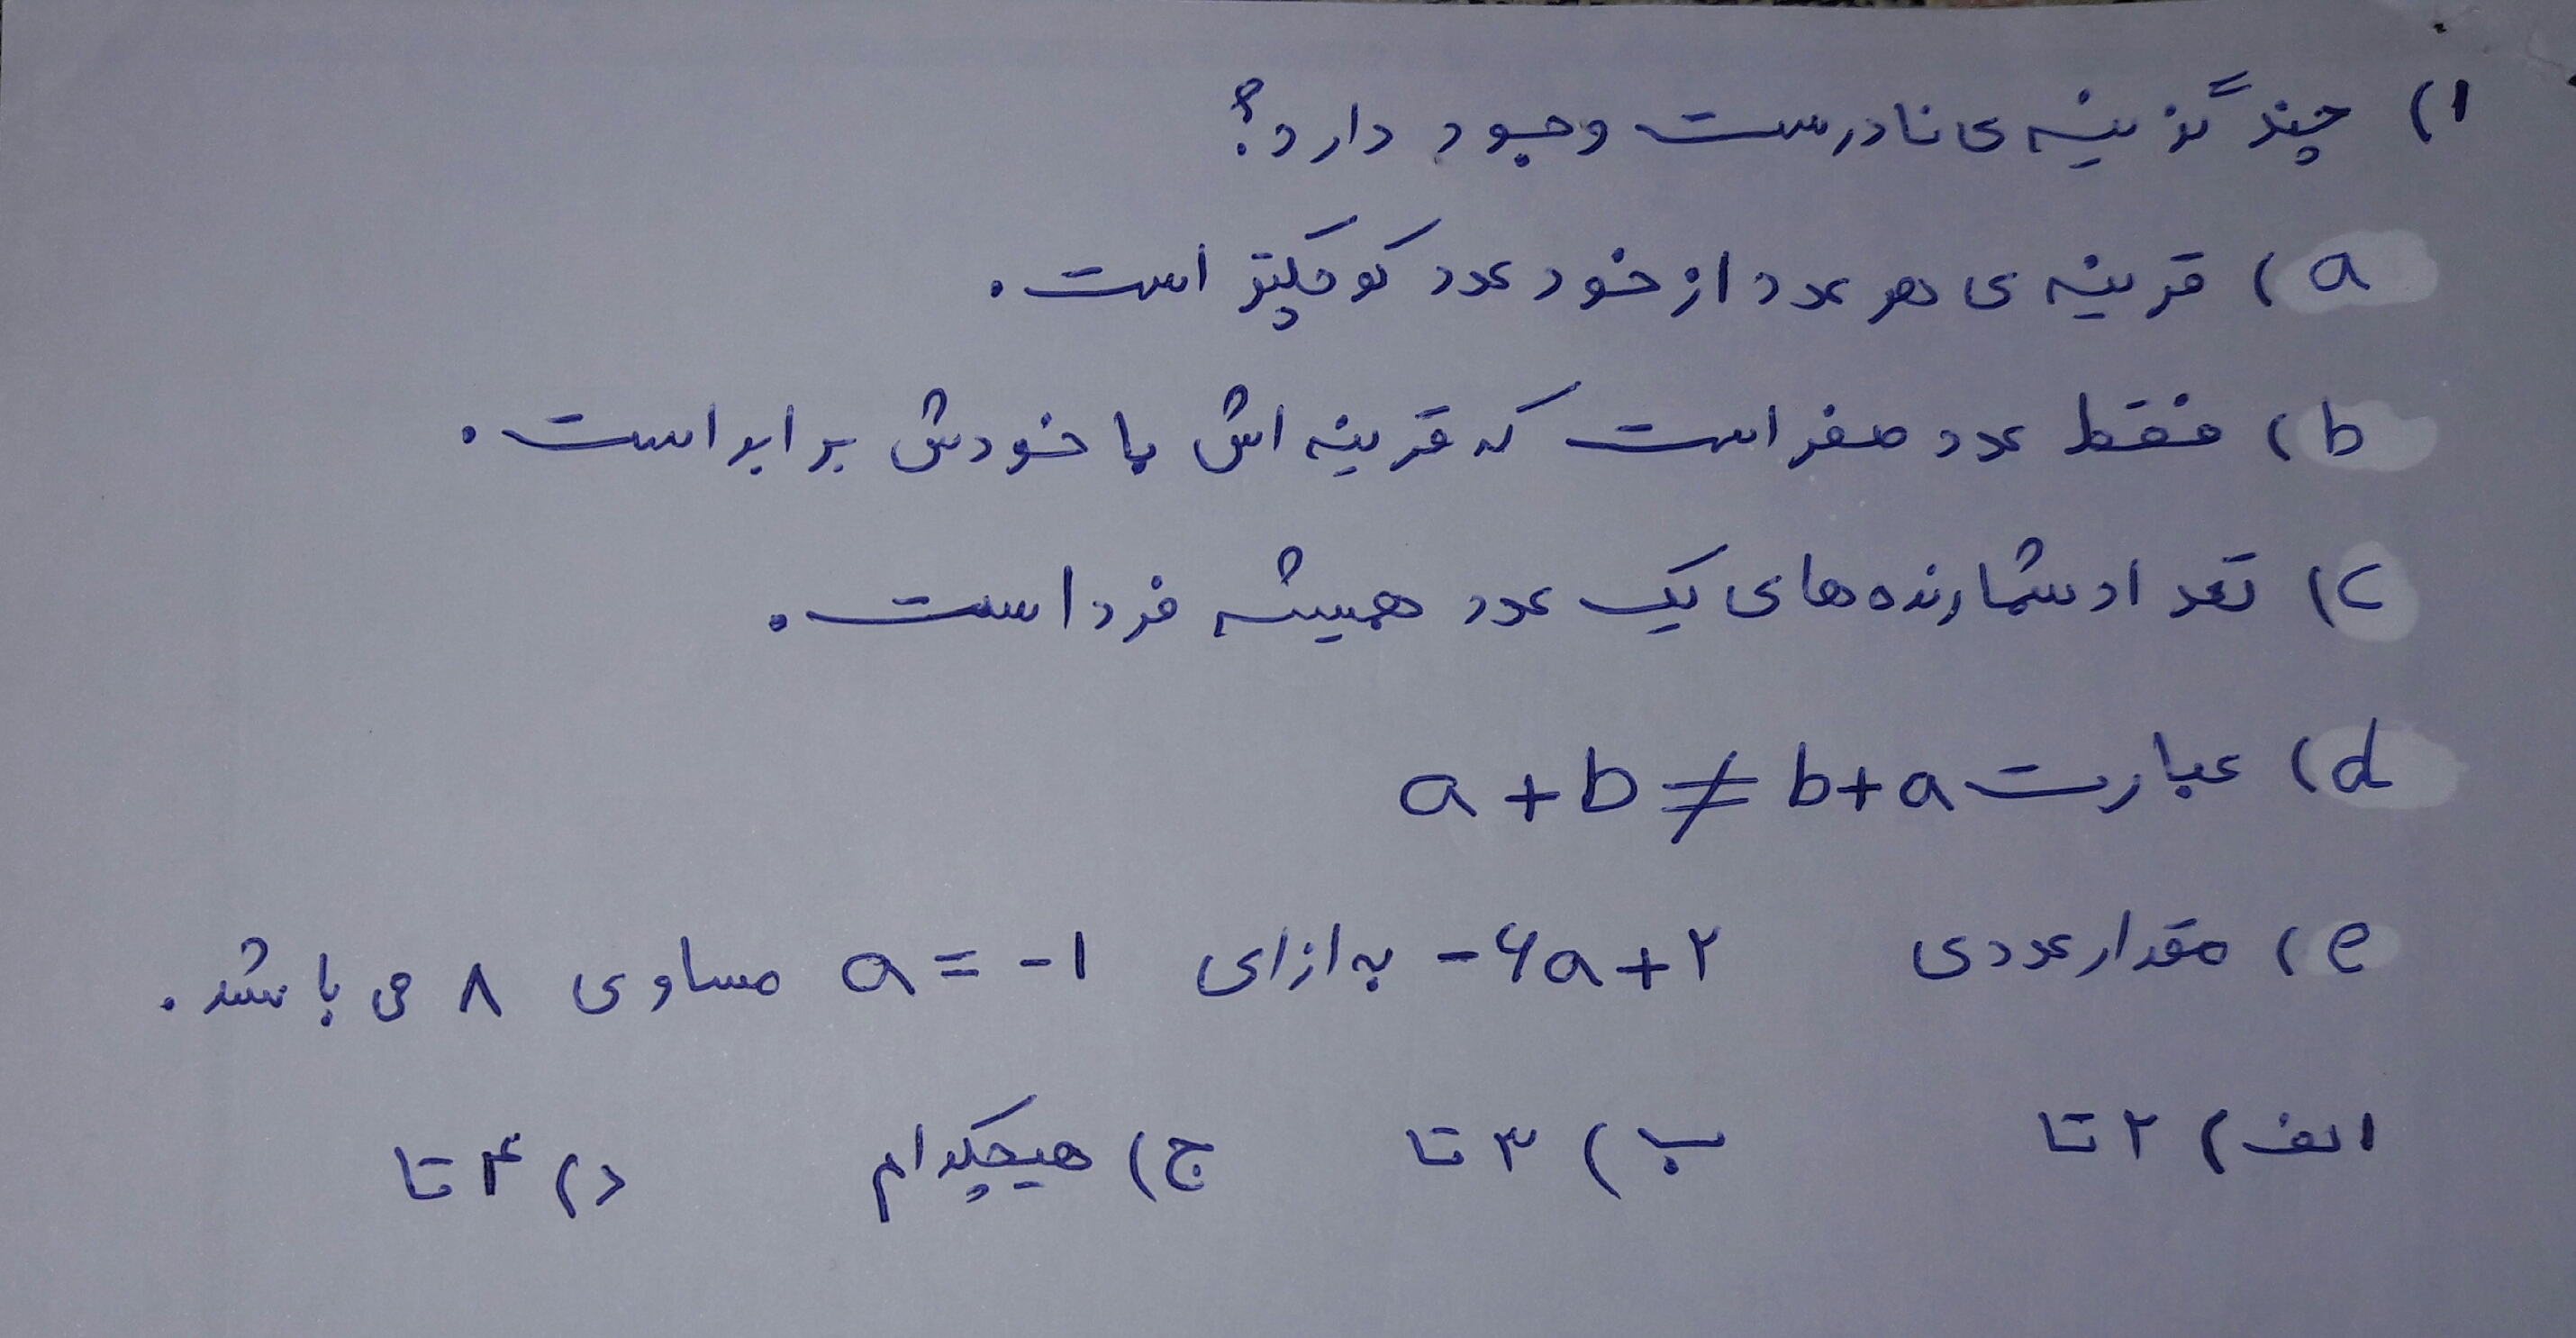 ۱) چند گزینه ی نادرست وجود دارد؟
a) قرینه ی هر عدد از خود عدد کوچکتر است.
b) فقط عدد صفر است که قرینه اش با خودش برابر است.
c) تعداد شمارنده های یک عدد همیشه فرد است.
d) عبارت a+b≠b+a
e) مقدار عددی -۶a+۲ به ازای a=-۱ مساوی ۸ می باشد.
الف) ۲ تا ب) ۳ تا ج) هیچکدام د) ۴ تا